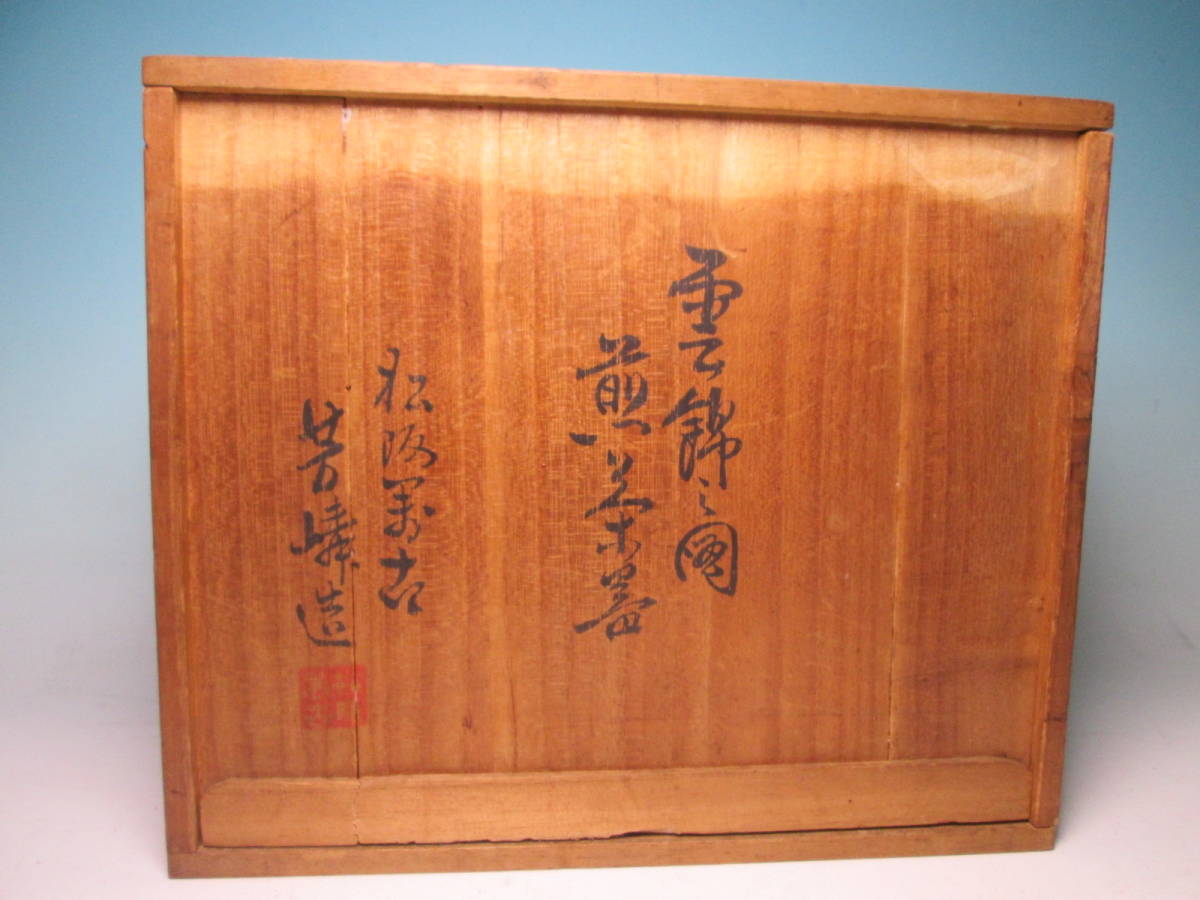 雲錦之圖
煎茶器
松阪萬古
芳峰造